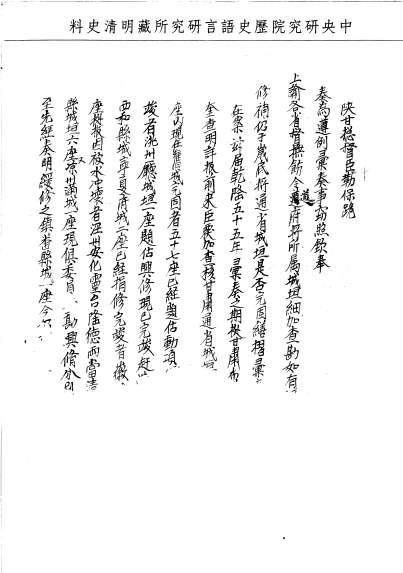 中央研究院歷史語言研究所藏明清史料
陝甘總督臣勒保跪
奏為遵例彙奏事竊照欽奉
上諭各省督撫飭令道府將所屬城垣細加查勘如有
修補仍于歲底將通省城垣是否完固繕摺彙
在案茲屆乾隆五十五年彙奏之期據甘肅布
全查明詳報前來臣覆加查核甘肅通省城垣
座內現在懇城完固者五十七座已經題估動項
竣者洮州廳城垣一座題估興修現已完竣
西和縣城寧夏府城二座已經捐修完竣者徽
座據報因被水沖壞者涇州安化靈台隆德兩當清
縣城垣六座秦州滿城一座現俱委員勘興修外
至先經奏明緩修之鎮番縣城一座今